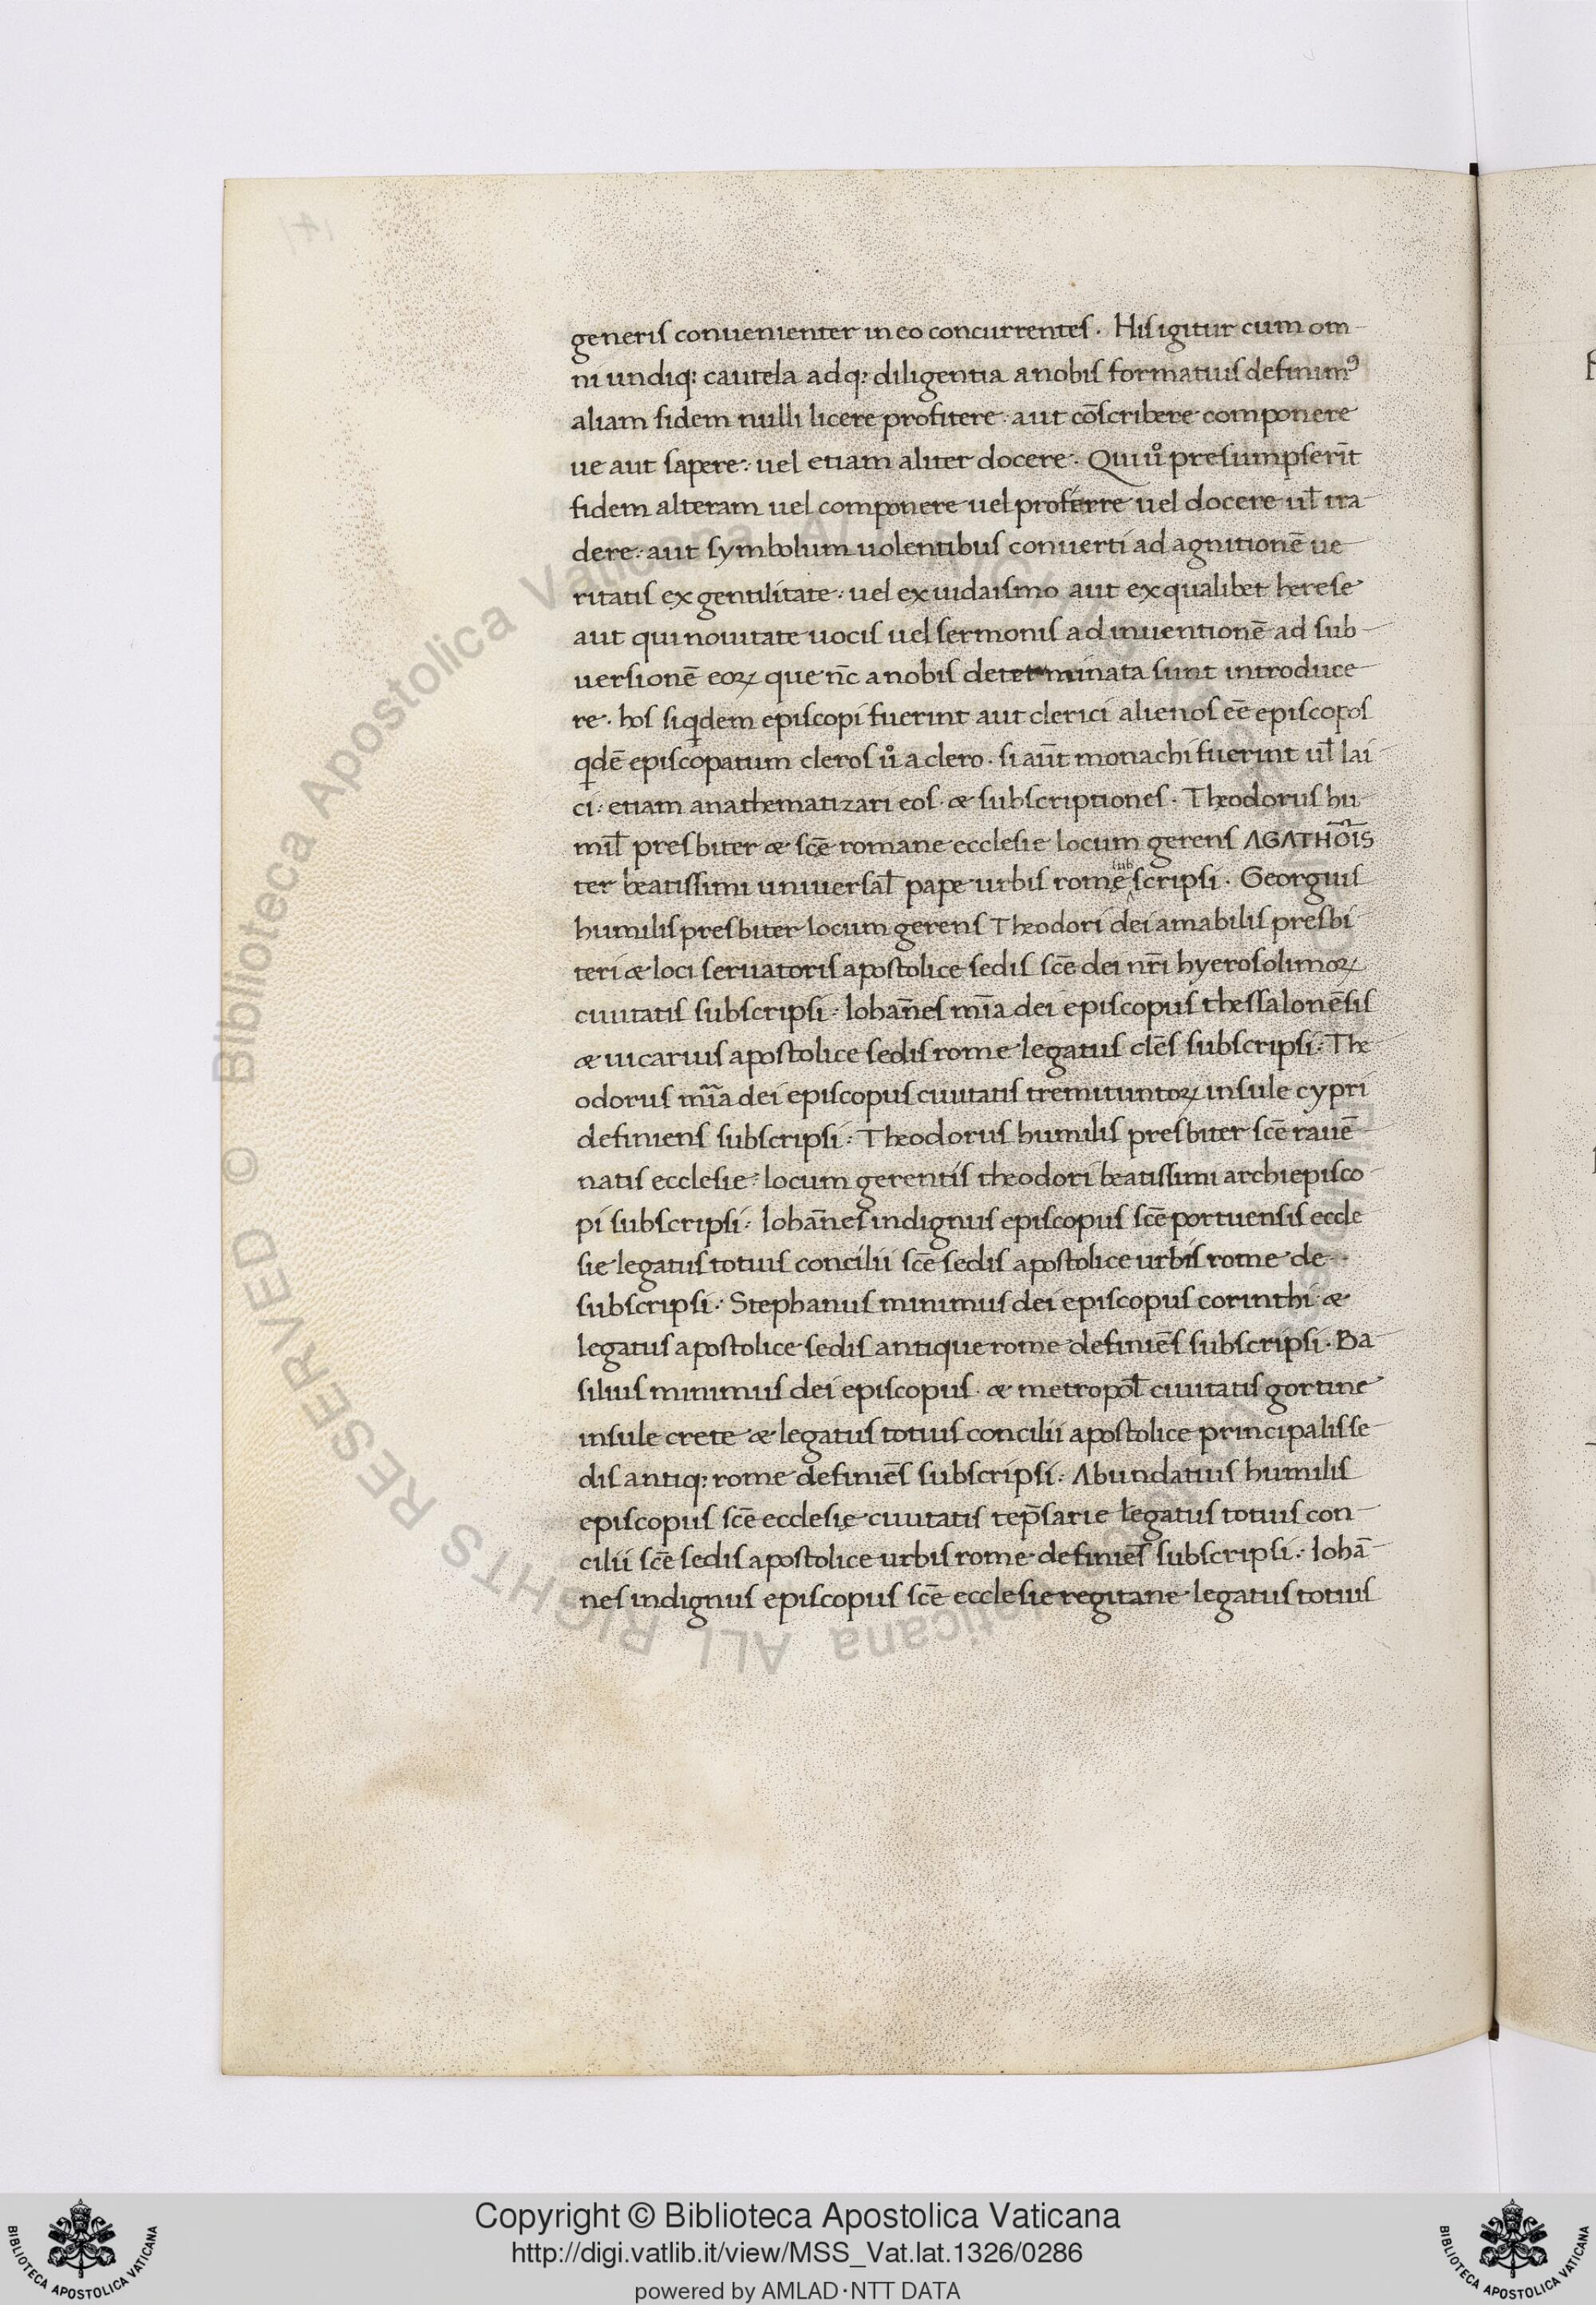 generis conuenienter in eo concurrentes. His igitur cum om-
ni undiq; cautela adq; diligentia a nobis formatius definimꝰ
aliam fidem nulli licere profitere. aut cōscribere componere
ue aut sapere. uel etiam aliter docere. Qui ů presumpserīt
fidem alteram uel componere uel proferre uel docere uł tra-
dere. aut symbolum uolentibus conuerti ad agnitionē ue-
ritatis ex gentilitate. uel ex iudaismo aut ex qualibet herese
aut qui nouitate uocis uel sermonis ad inuentionē ad sub-
uersionē eoꝝ que nc̄ a nobis determinata sunt introduce-
re. hos siqdem episcopi fuerint aut clerici alienos eē episcopos
qdē episcopatum cleros ů a clero. si aūt monachi fuerint uł lai
ci. etiam anathematizari eos. & subscriptiones. Theodorus hu-
mił presbiter & scē romane ecclesie locum gerens AGATHOĪS
ter beatissimi uniuersał pape urbis rome subscripsi. Georgius
humilis presbiter locum gerens Theodori dei amabilis presbi-
teri & loci seruatoris apostolice sedis scē dei nr̄i hyerosolimoꝝ
ciuitatis subscripsi. Iohānes mīa dei episcopus thessalonēsis
& uicarius apostolice sedis rome legatus clēs subscripsi. The-
odorus mīa dei episcopus ciuitatis tremituntoꝝ insule cypri
definiens subscripsi. Theodorus humilis presbiter scē rauē-
natis ecclesie. locum gerentis theodori beatissimi archiepisco-
pi subscripsi. Iohānes indignus episcopus scē portuensis eccle
sie legatus totius concilii scē sedis apostolice urbis rome de-
subscripsi. Stephanus minimus dei episcopus corinthi &
legatus apostolice sedis antique rome definiēs subscripsi. Ba-
silius minimus dei episcopus. & metropoł ciuitatis gortine
insule crete & legatus totius concilii apostolice principalis se-
dis antiq; rome definiēs subscripsi. Abundatius humilis
episcopus scē ecclesię ciuitatis tep̄sarie legatus totius con-
cilii scē sedis apostolice urbis rome definiēs subscripsi. Iohā-
nes indignus episcopus scē ecclesie regitane legatus totius
© Biblioteca Apostolica Vaticana ALL RIGHTS RESERVED
Copyright © Biblioteca Apostolica Vaticana
http://digi.vatlib.it/view/MSS_Vat.lat.1326/0286
powered by AMLAD·NTT DATA
BIBLIOTECA APOSTOLICA VATICANA
BIBLIOTECA APOSTOLICA VATICANA